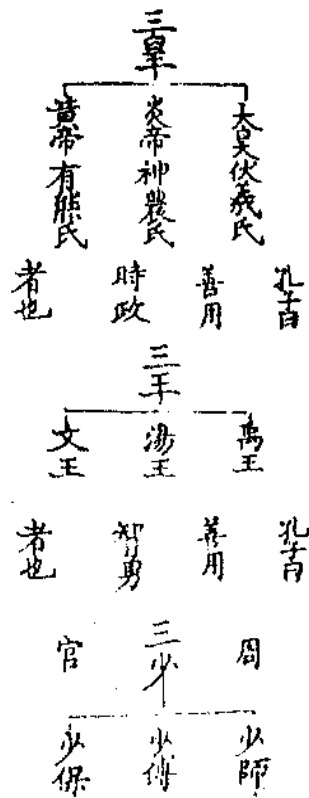 三皇
太昊伏羲氏
炎帝神農氏
黄帝有熊氏
孔子曰
善用
時政
者也
三王
禹王
湯王
文王
孔子曰
善用
智勇
者也
周
三少
官
少師
少傅
少保